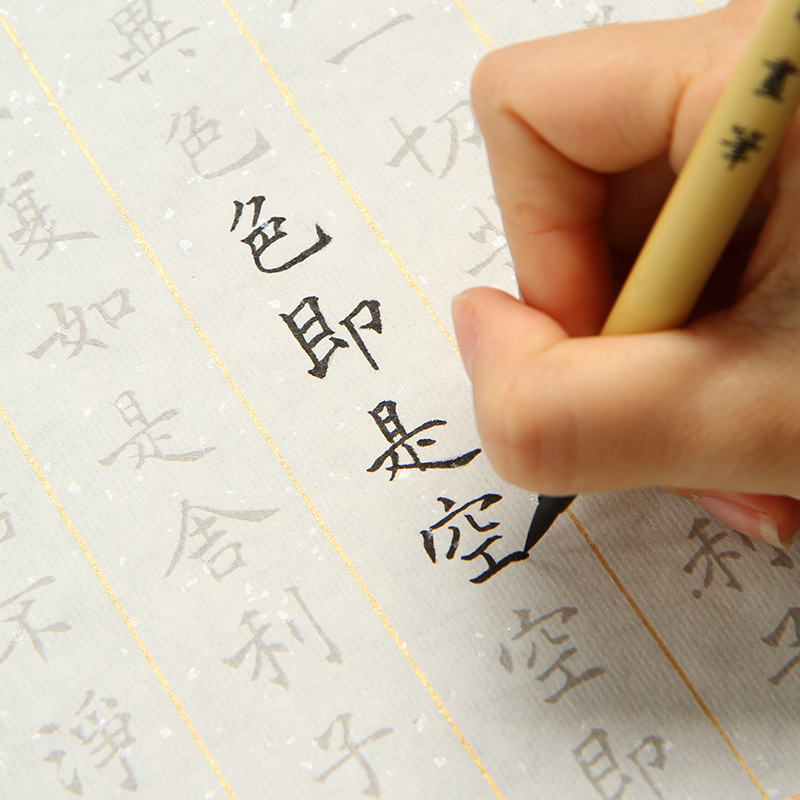 一切苦利子
異色色即是空空即
復如是舍利子
不淨
筆